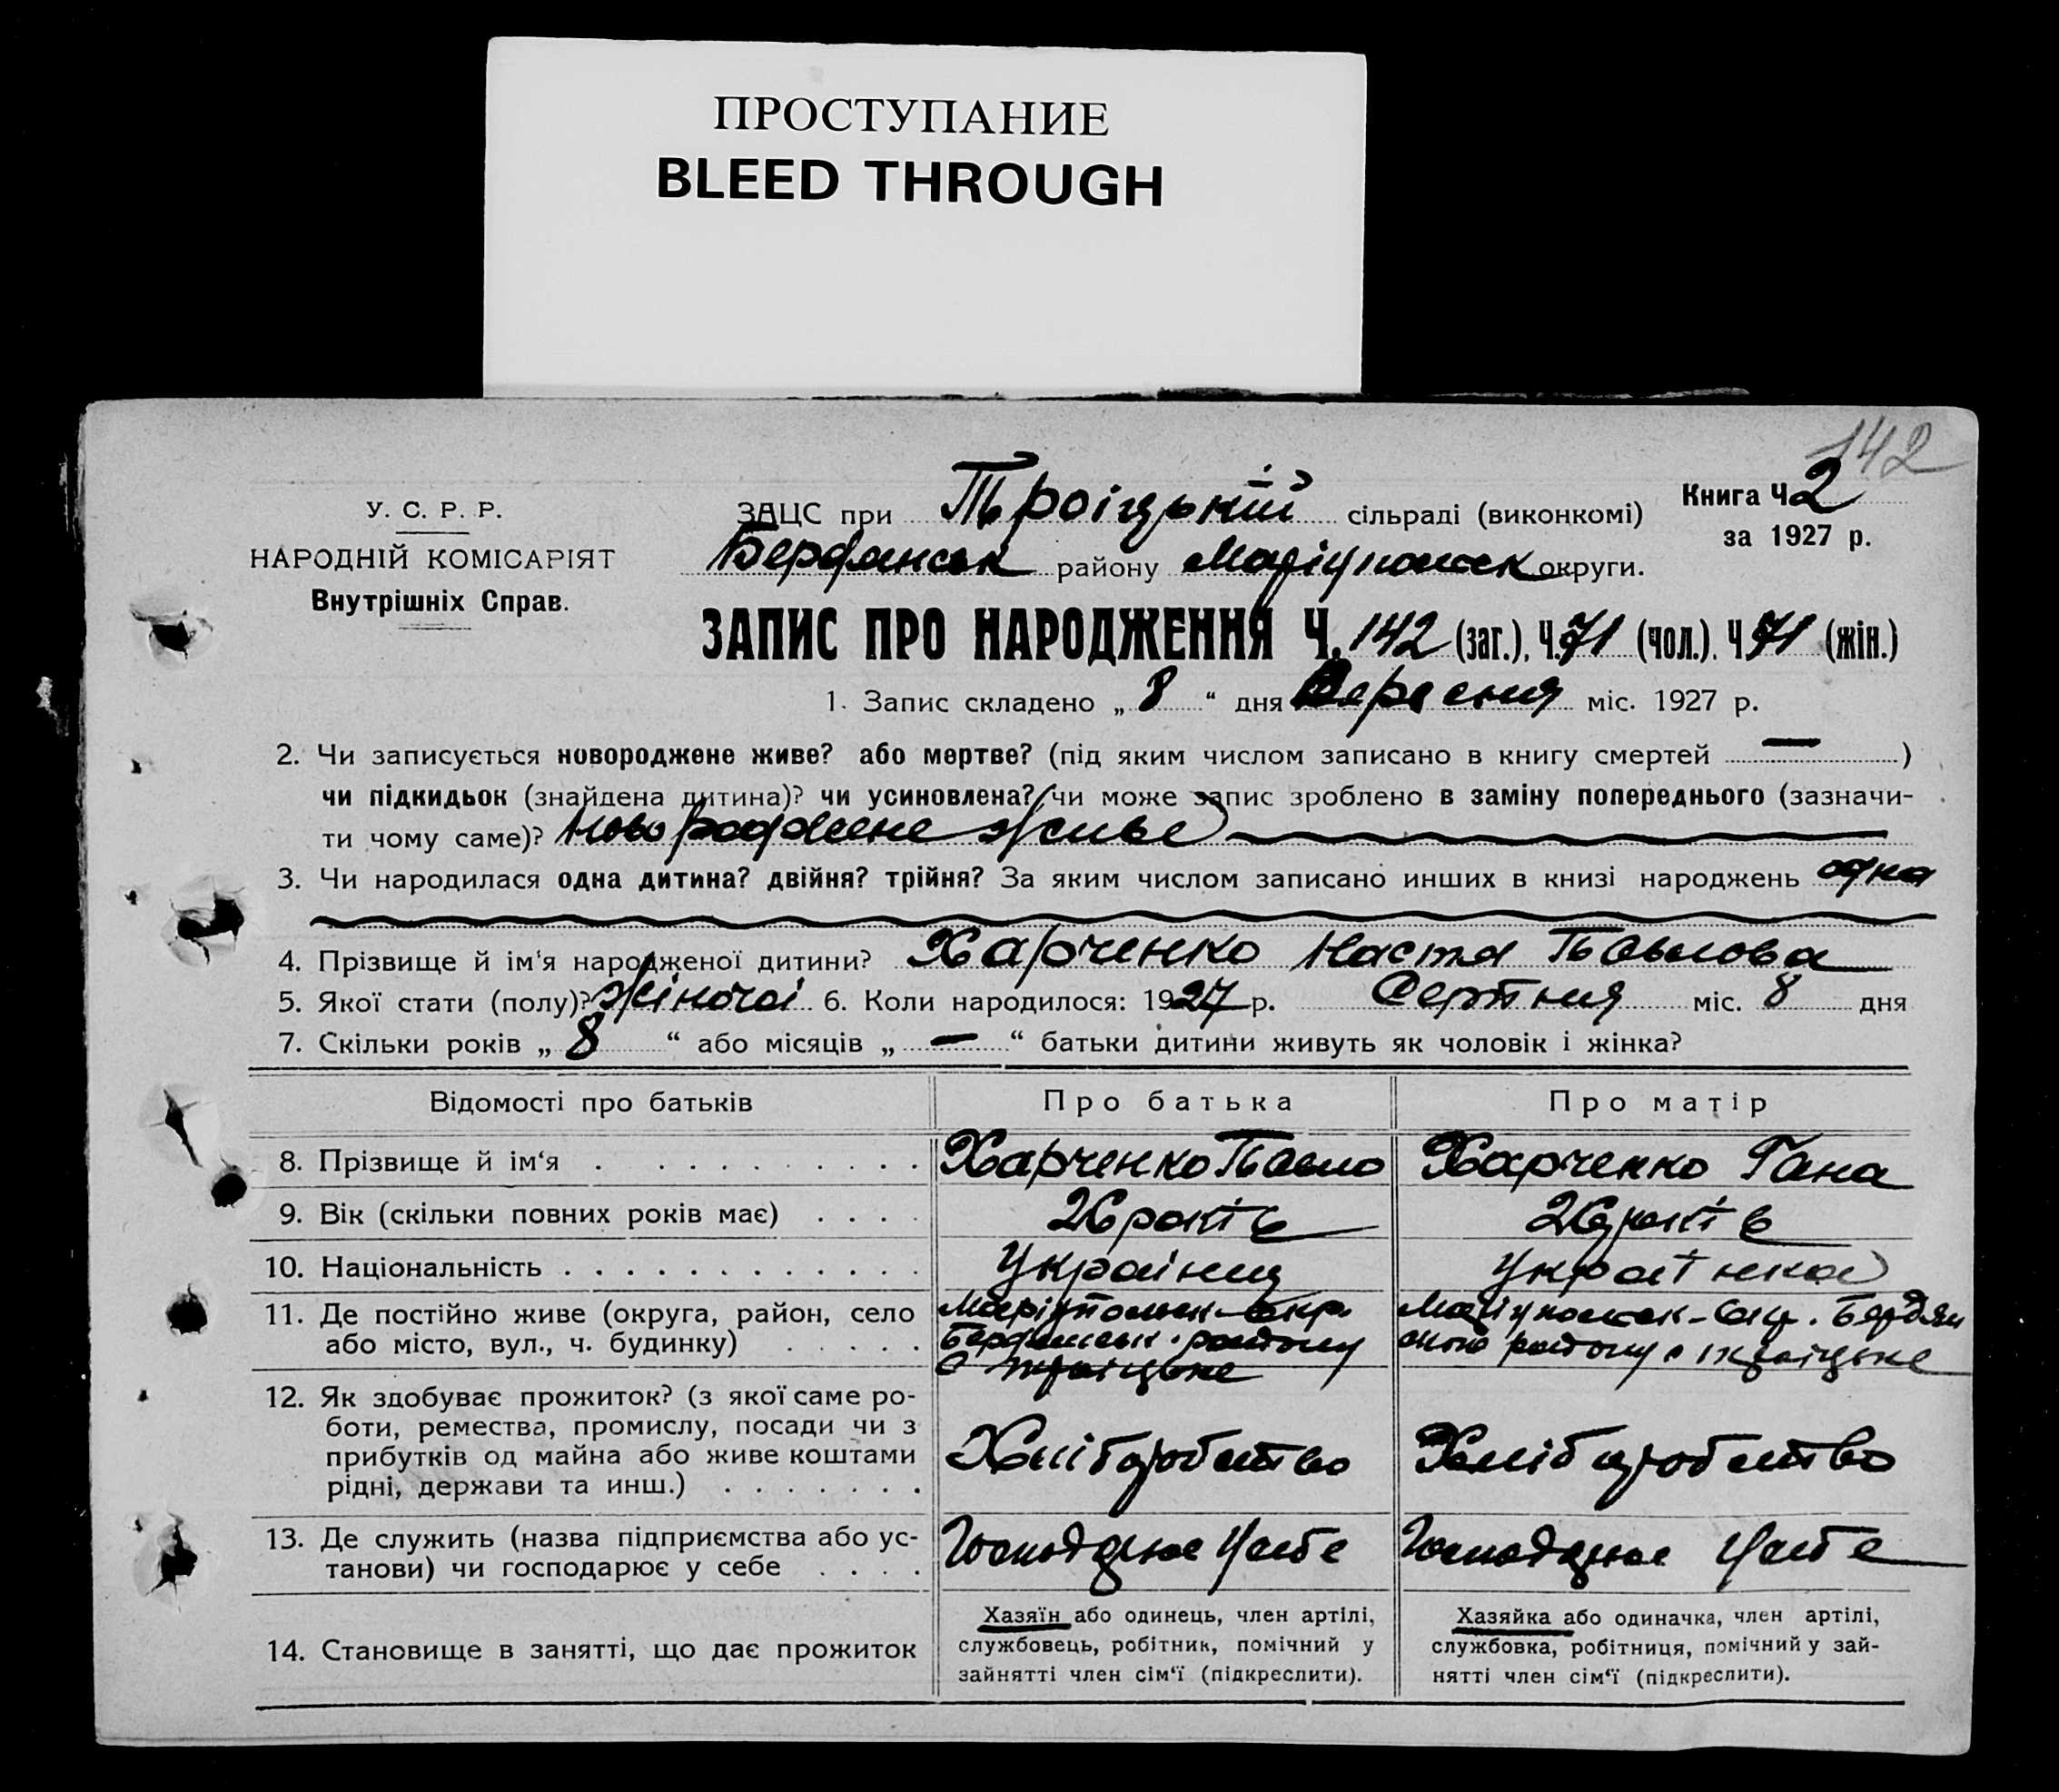 ПРОСТУПАНИЕ
BLEED THROUGH
142
У. С. Р. Р.
НАРОДНІЙ КОМІСАРІЯТ
Внутрішніх Справ.
ЗАЦС при Троіцькій сільраді (виконкомі)
Книга Ч. 2
за 1927 р.
Бердянськ району Маріупольськ округи.
ЗАПИС ПРО НАРОДЖЕННЯ Ч. 142 (заг.), Ч. 71 (чол.). Ч 71 (жін.)
1. Запис складено „ 8 “ дня Вересня міс. 1927 р.
2. Чи записується новороджене живе? або мертве? (під яким числом записано в книгу смертей — )
чи підкидьок (знайдена дитина)? чи усиновлена? чи може запис зроблено в заміну попереднього (зазначи-
ти чому саме)? Новорождене живе
3. Чи народилася одна дитина? двійня? трійня? За яким числом записано инших в книзі народжень одна
4. Прізвище й ім'я народженої дитини? Харченко Настя Павлова
5. Якої стати (полу)? жіночоі 6. Коли народилося: 1927 р. Серпния міс. 8 дня
7. Скільки років „ 8 “ або місяців „ — “ батьки дитини живуть як чоловік і жінка?
Відомості про батьків Про батька Про матір
8. Прізвище й ім‘я Харченко Павло Харченко Гана
9. Вік (скільки повних років має) 26 років 26 років
10. Національність Українец Українка
11. Де постійно живе (округа, район, село Маріупольськ-Окр. Маріупольськ-Окр. Бердян
або місто, вул., ч. будинку) Бердянськ. району ського району с Троіцьке
с Троіцьке
12. Як здобуває прожиток? (з якої саме ро-
боти, ремества, промислу, посади чи з
прибутків од майна або живе коштами Хліборобство Хліборобство
рідні, держави та инш.)
13. Де служить (назва підприємства або ус- Господарює у себе Господарює у себе
танови) чи господарює у себе
14. Становище в занятті, що дає прожиток
Хазяїн або одинець, член артілі,
службовець, робітник, помічний у
зайнятті член сім‘ї (підкреслити).
Хазяйка або одиначка, член артілі,
службовка, робітниця, помічний у зай-
нятті член сім‘ї (підкреслити).